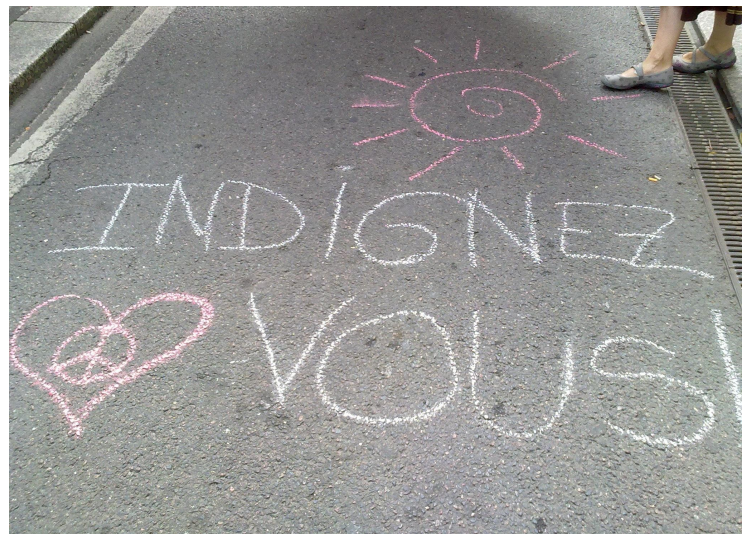 INDIGNEZ
VOUS!